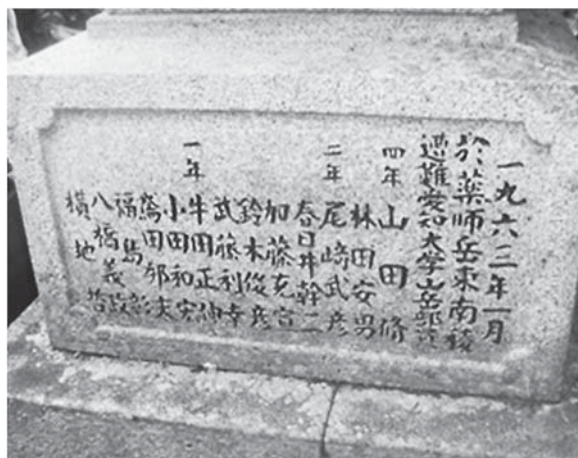 一九六三年一月
於薬師岳東南稜
遭難愛知大学山岳部員
四年 山田 脩
林田安男
二年 尾崎武彦
春日井幹二
加藤克宣
鈴木俊彦
武藤利幸
一年 牛田正伸
小田和宏
田郁夫
福島 彰
八橋義政
横地